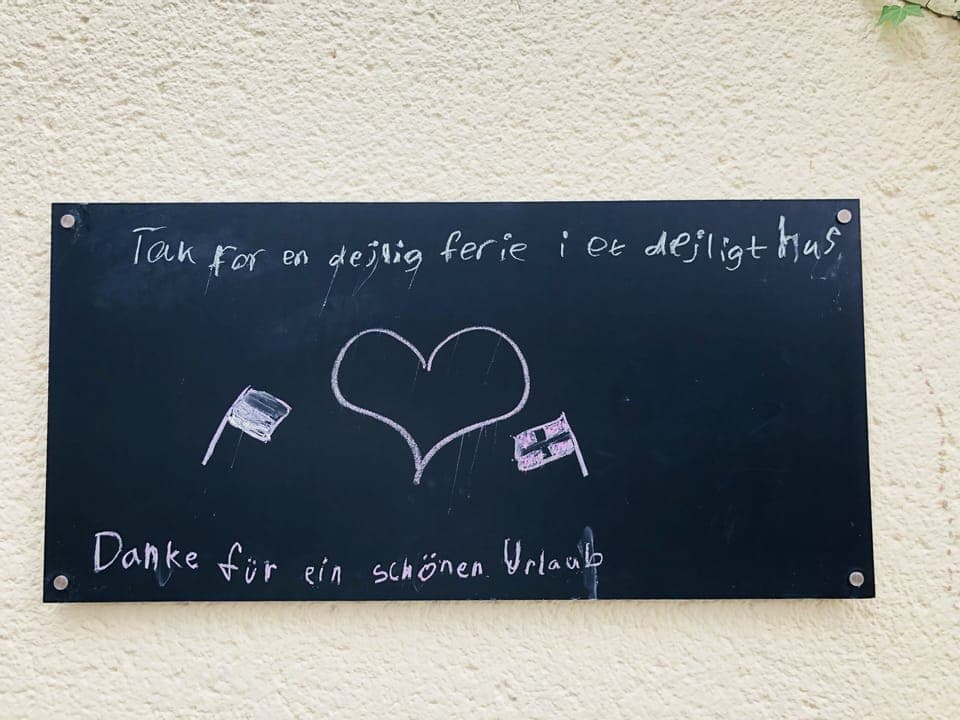 Tak for en dejlig ferie i et dejligt hus
Danke für ein schönen Urlaub